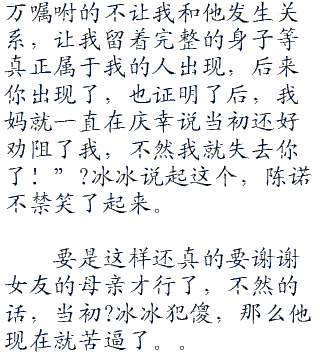 万嘱咐的不让我和他发生关
系，让我留着完整的身子等
真正属于我的人出现，后来
你出现了，也证明了后，我
妈就一直在庆幸说当初还好
劝阻了我，不然我就失去你
了！”?冰冰说起这个，陈诺
不禁笑了起来。
要是这样还真的要谢谢
女友的母亲才行了，不然的
话，当初?冰冰犯傻，那么他
现在就苦逼了。。